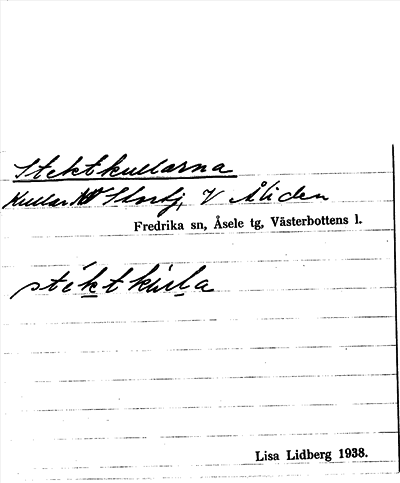 Stektkullarna
Kullar Storbj, V Åliden
Fredrika sn, Åsele tg, Västerbottens l.
stéktkúlla
Lisa Lidberg 1938.